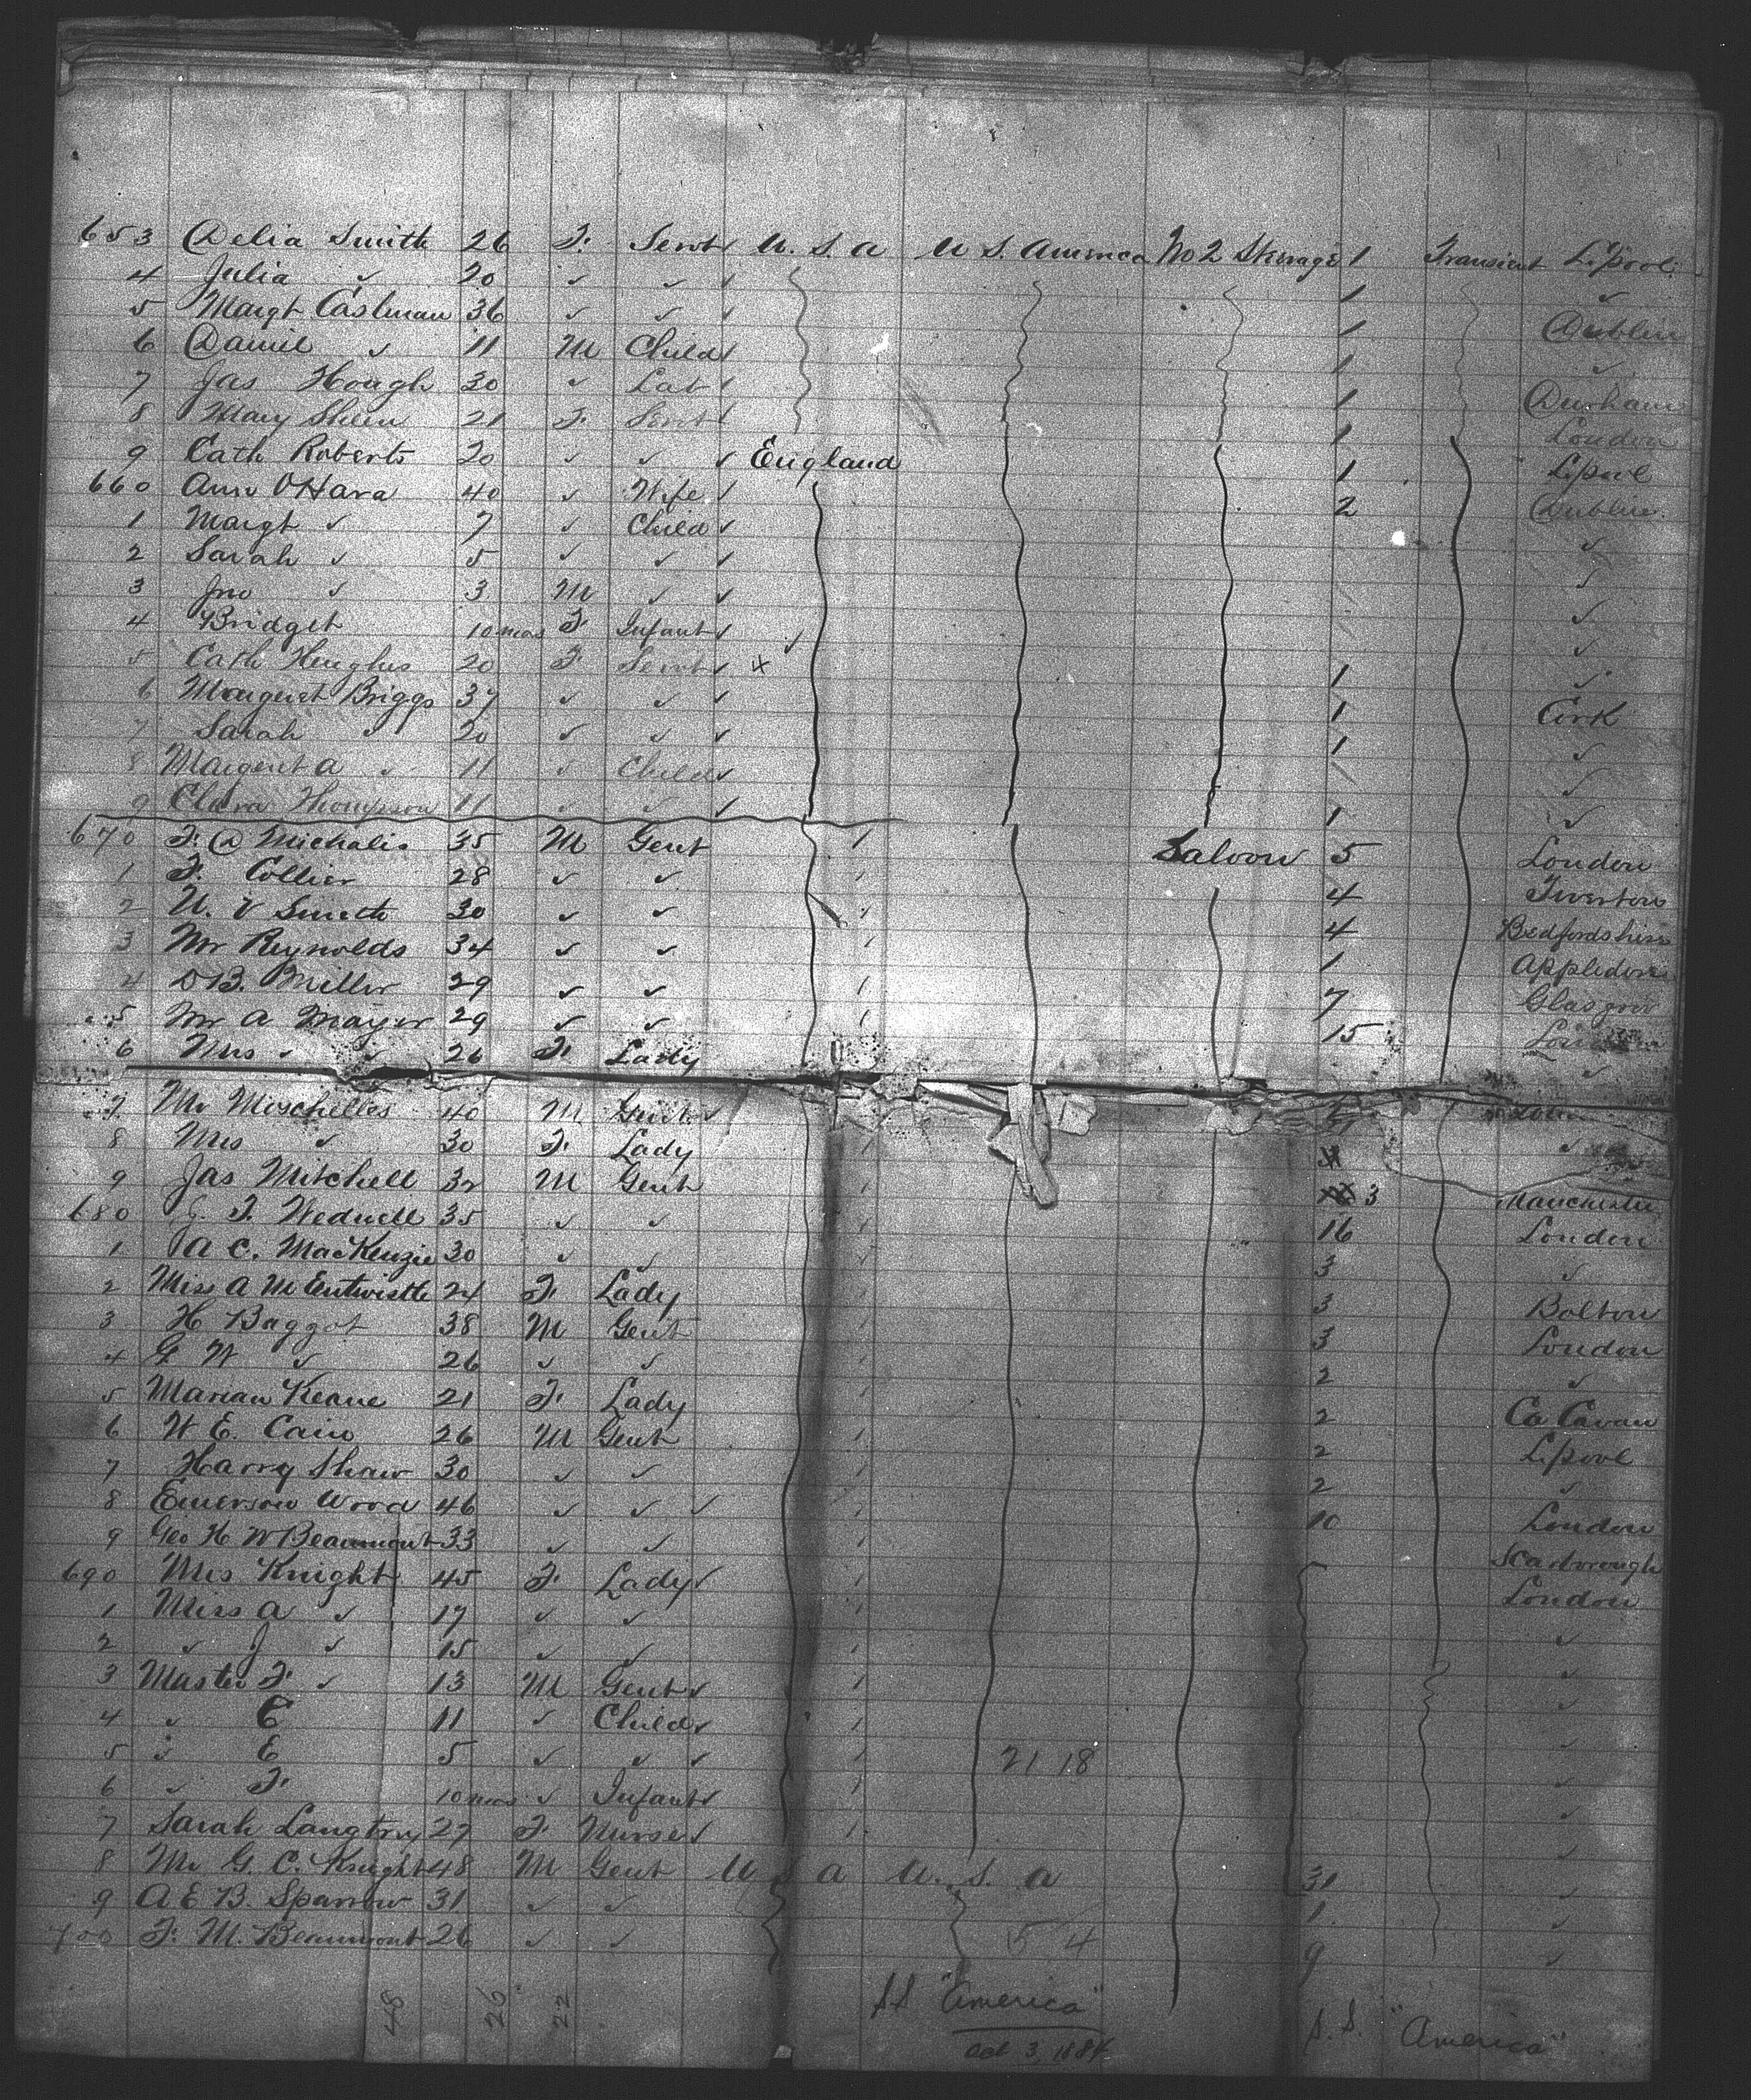 653 Delia Smith 26 F. Servt U. S. A U S. America No 2 Steerage 1 Transient L'pool
4 Julia ✓ 20 ✓ ✓ 1 ✓
5 Margt Cashman 36 ✓ ✓ 1 Dublin
6 Daniel ✓ 11 M Child 1 ✓
7 Jas Hough 30 ✓ Lab 1 Durham
8 Mary Sheen 21 F. Servt 1 London
9 Cath Roberts 20 ✓ ✓ England 1 L'pool
660 Ann O'Hara 40 ✓ Wife 2 Dublin
1 Margt ✓ 7 ✓ Child ✓
2 Sarah ✓ 5 ✓ ✓ ✓
3 Jno ✓ 3 M ✓ ✓
4 Bridget 10 mos F Infant ✓
5 Cath Hughes 20 F Servt x 1 ✓
6 Margaret Briggs 37 ✓ ✓ 1 Cork
7 Sarah ✓ 20 ✓ ✓ 1 ✓
8 Margaret A ✓ 11 ✓ Child ✓
9 Clara Thompson 11 ✓ ✓ 1 ✓
670 F. D Michalis 35 M Gent 1 Saloon 5 London
1 F. Collier 28 ✓ ✓ 4 Tiverton
2 U. V Smith 30 ✓ ✓ 4 Bedfordshire
3 Mr Reynolds 34 ✓ ✓ 1 Appledore
4 D B. Miller 29 ✓ ✓ 7 Glasgow
5 Mr A Mayer 29 ✓ ✓ 15 London
6 Mrs ✓ 26 F. Lady ✓
7 Mr Mischelles 40 M Gent
8 Mrs ✓ 30 F. Lady ✓
9 Jas Mitchell 32 M Gent 3 Manchester
680 J. T. Wedwell 35 ✓ ✓ 16 London
1 A C. MacKenzie 30 ✓ ✓ 3 ✓
2 Miss A M Entwistle 24 F. Lady 3 Bolton
3 H Baggot 38 M Gent 3 London
4 G W ✓ 26 ✓ ✓ 2 ✓
5 Marian Keane 21 F. Lady 2 Co Cavan
6 W E. Cain 26 M Gent 2 L'pool
7 Harry Shaw 30 ✓ ✓ 2 ✓
8 Emerson Wood 46 ✓ ✓ 10 London
9 Geo H W Beaumont 33 ✓ ✓ Scarborough
690 Mrs Knight 45 F. Lady London
1 Miss A ✓ 17 ✓ ✓ ✓
2 ✓ J ✓ 15 ✓ ✓ ✓
3 Master F. ✓ 13 M Gent ✓
4 ✓ E 11 ✓ Child ✓
5 ✓ E 5 ✓ ✓ 21 18 ✓
6 ✓ F. 10 mos ✓ Infant ✓
7 Sarah Langtry 27 F Nurse ✓
8 Mr G. C. Knight 48 M Gent U S A U. S. A 31 ✓
9 A E B. Sparrow 31 ✓ ✓ 1 ✓
700 F. M. Beaumont 26 ✓ ✓ 5 4 9 ✓
48 26 22
SS "America"
Oct 3, 1884
S. S. "America"